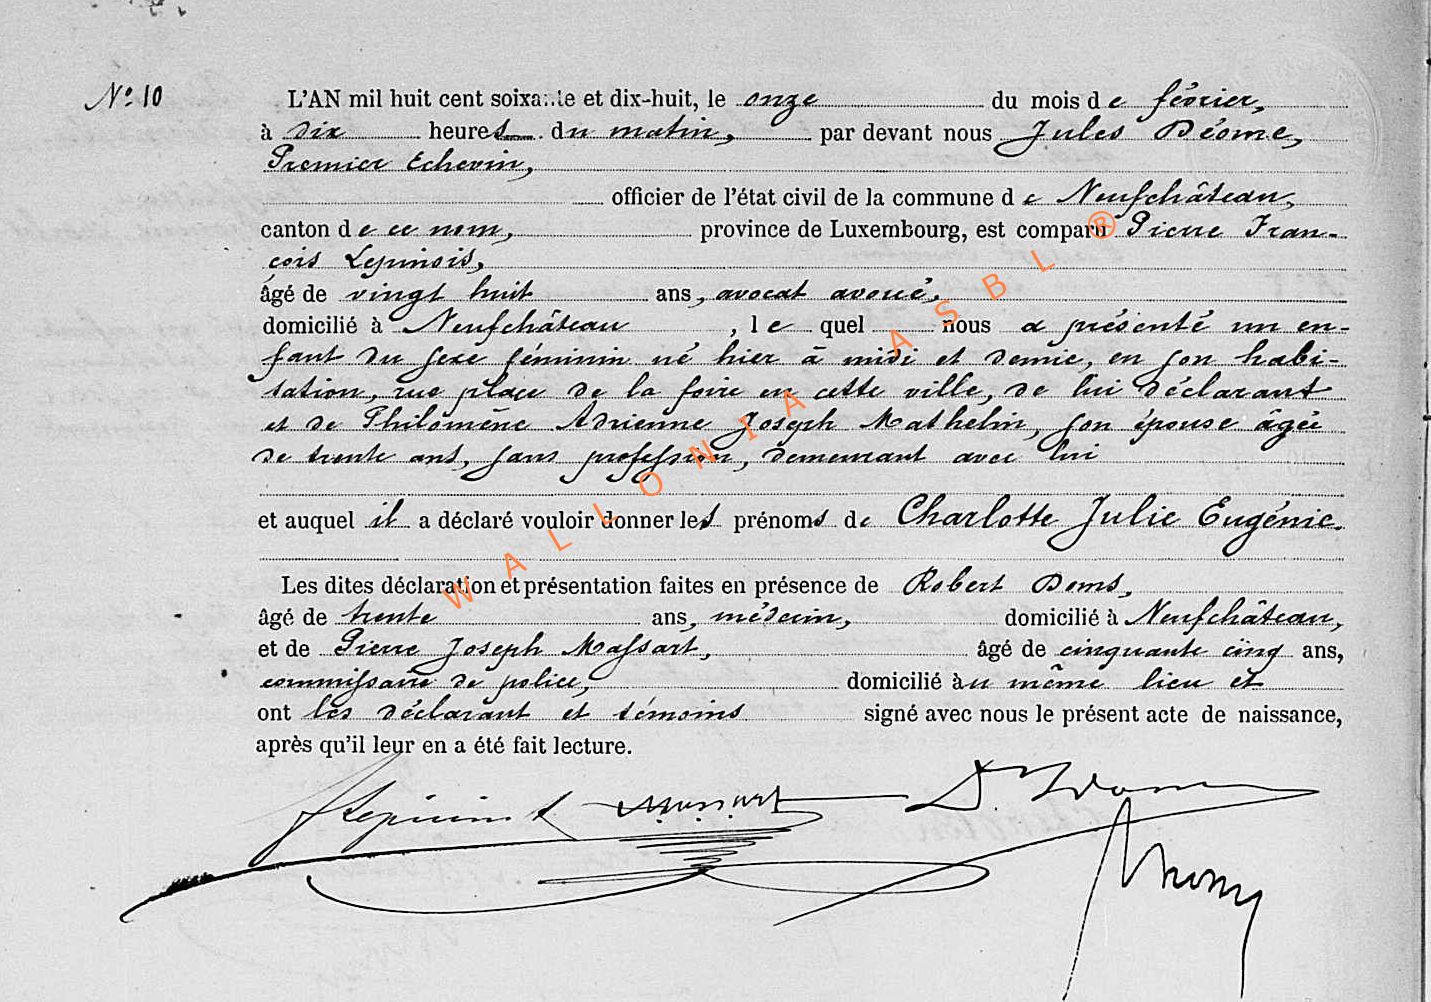 N° 10
L'AN mil huit cent soixante et dix-huit, le onze du mois de février,
à dix heures du matin, par devant nous Jules Déome,
Premier Echevin,
officier de l'état civil de la commune de Neufchâteau,
canton de ce nom, province de Luxembourg, est comparu Pierre Fran-
çois Lepinois,
âgé de vingt huit ans, avocat avoué,
domicilié à Neufchâteau, lequel nous a présenté un en-
fant du sexe féminin né hier à midi et demie, en son habi-
tation, rue place de la foire en cette ville, de lui déclarant
et de Philomène Adrienne Joseph Mathelin, son épouse âgée
de trente ans, sans profession, demeurant avec lui
et auquel il a déclaré vouloir donner les prénoms de Charlotte Julie Eugénie.
Les dites déclaration et présentation faites en présence de Robert Doms,
âgé de trente ans, médecin, domicilié à Neufchâteau,
et de Pierre Joseph Massart, âgé de cinquante cinq ans,
commissaire de police, domicilié àu même lieu et
ont les déclarant et témoins signé avec nous le présent acte de naissance,
après qu'il leur en a été fait lecture.
Massart
WALLONIA ASBL ®